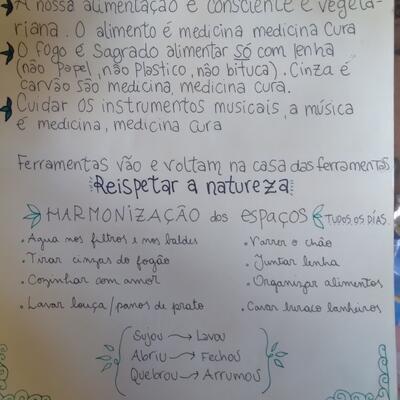 A nossa alimentação é consciente e vegeta-
riana. O alimento é medicina medicina cura
O fogo é Sagrado alimentar só com lenha
(não papel, não plastico, não bituca). Cinza é
carvão são medicina, medicina cura.
Cuidar os instrumentos musicais, a música
é medicina, medicina cura
Ferramentas vão e voltam na casa das ferramentas
Reispetar a natureza
HARMONIZAÇÃO dos espaços TUDOS OS DÍAS.
• Agua nos filtros e nos baldes
• Tirar cinzas do fogão
• Cozinhar com amor
• Lavar louça/panos de prato
• Varrer o chão
• Juntar lenha
• Organizar alimentos
• Cavar buraco banheiros
Sujou → Lavou
Abriu → Fechou
Quebrou → Arrumou